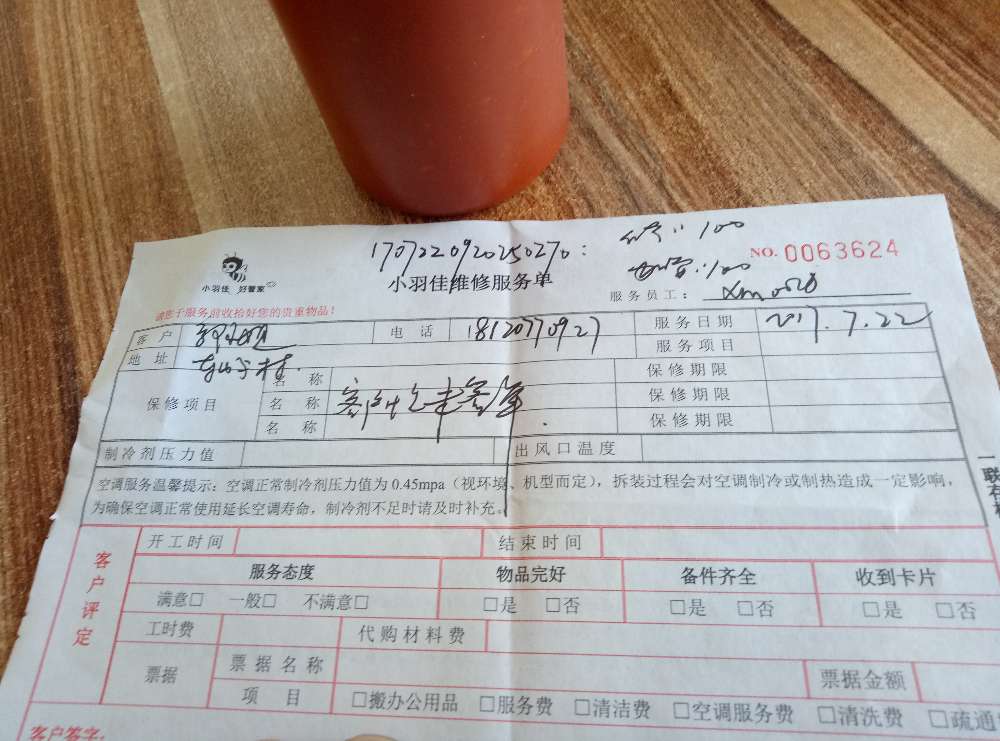 1707220920250270:
100
NO. 0063624
小羽佳 好管家
小羽佳维修服务单
:100
服务员工:
请您于服务前收拾好您的贵重物品!
客户 电话 18120770927 服务日期 2017.7.22
地址 服务项目
保修项目 名称 保修期限
名称 保修期限
名称 保修期限
制冷剂压力值 出风口温度
空调服务温馨提示:空调正常制冷剂压力值为 0.45mpa(视环境、机型而定),拆装过程会对空调制冷或制热造成一定影响,
为确保空调正常使用延长空调寿命,制冷剂不足时请及时补充。
客户评定
开工时间 结束时间
服务态度 物品完好 备件齐全 收到卡片
满意□ 一般□ 不满意□ □是 □否 □是 □否 □是 □否
工时费 代购材料费
票据 票据名称 票据金额
项目 □搬办公用品 □服务费 □清洁费 □空调服务费 □清洗费 □疏通
客户签字: